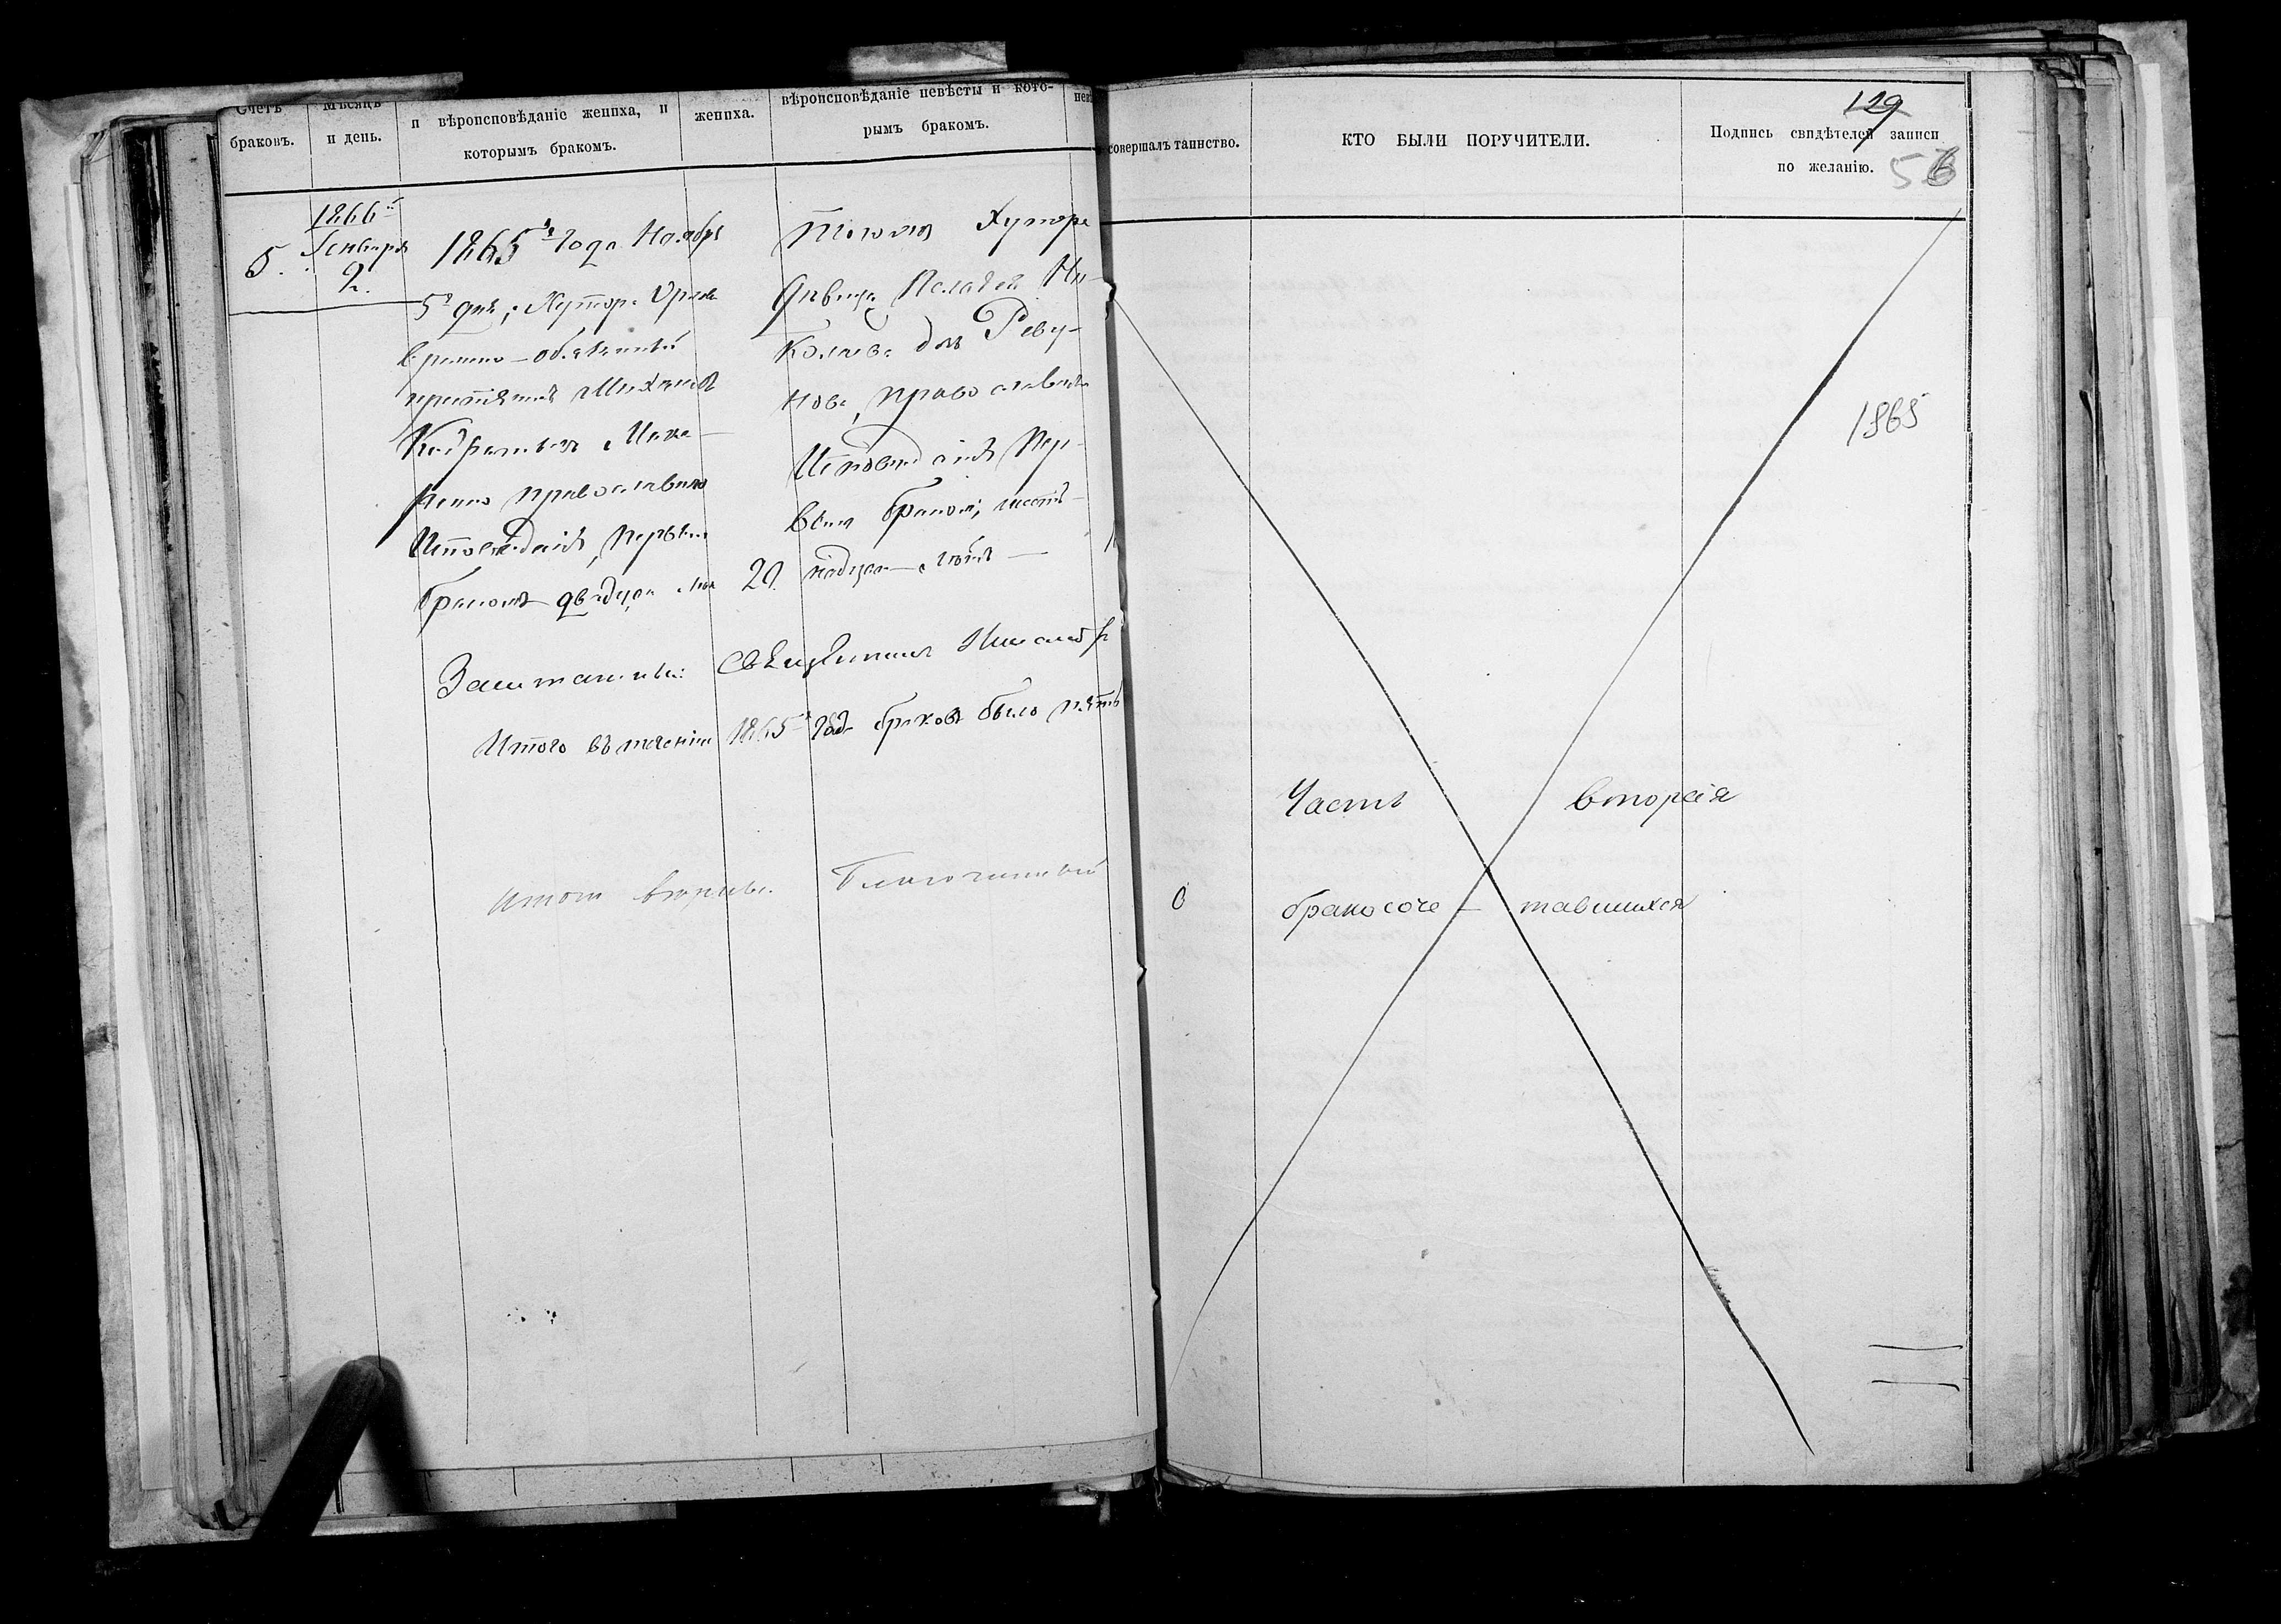 Счетъ
браковъ.
Мѣсяцъ
и день.
и вѣроисповѣданіе жениха, и
которымъ бракомъ.
жениха.
вѣроисповѣданіе невѣсты и кото-
рымъ бракомъ.
нев
5.
1866
Генваря
2.
1865 года Ноября
5 дня; Хутора
временно-обязанный
крестьянинъ Михаилъ
православнаго
Исповѣданія, первымъ
бракомъ двадцати
20
Тогоже Хутора
дѣвица Пелагея Ни-
колаева дочь Реву-
нова, православнаго
Исповѣданія Пер-
вымъ бракомъ, шест-
надцати лѣтъ
Заштатный Священникъ
Итого въ теченіи 1865 года браковъ было пять
Итогъ вѣренъ. Благочинный
совершалъ таинство.
КТО БЫЛИ ПОРУЧИТЕЛИ.
Подпись свидѣтелей записи
по желанію.
129
1865
Часть вторая
о бракосоче- тавшихся